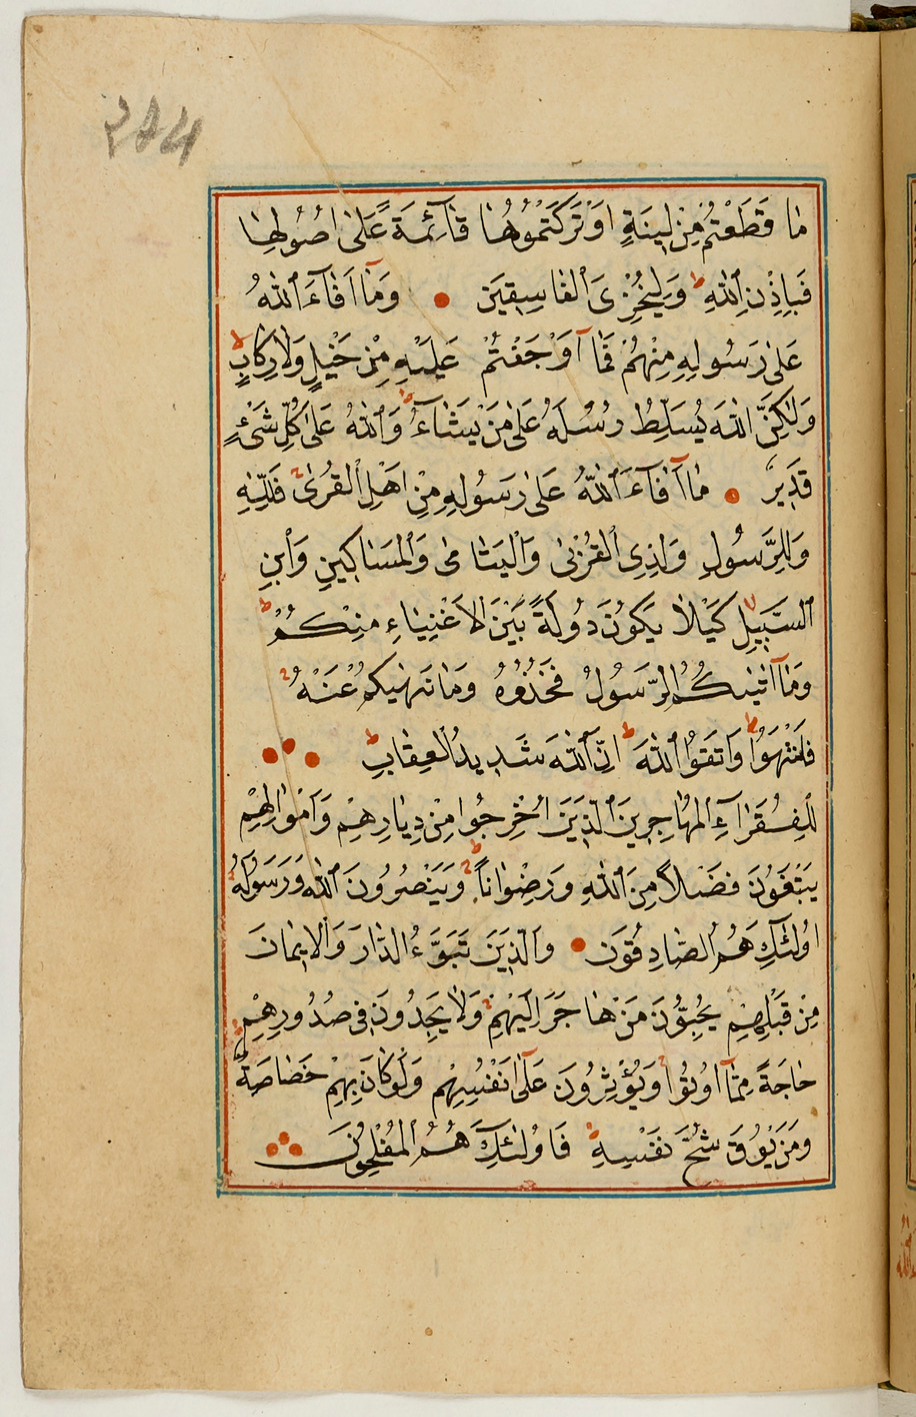 ٢٨٤
مَا قَطَعْتُمْ مِنْ لِينَةٍ اَوْ تَرَكْتُمُوهَا قَآئِمَةً عَلٰى اُصُولِهَا
فَبِاِذْنِ اللّٰهِ ط وَلِيُخْزِىَ الْفَاسِقِينَ وَمَٓا اَفَٓاءَ اللّٰهُ
عَلٰى رَسُولِهِ مِنْهُمْ فَمَٓا اَوْجَفْتُمْ عَلَيْهِ مِنْ خَيْلٍ وَلَا رِكَابٍ
وَلٰكِنَّ اللّٰهَ يُسَلِّطُ رُسُلَهُ عَلٰى مَنْ يَشَٓاءُ ط وَاللّٰهُ عَلٰى كُلِّ شَىْءٍ
قَدِيرٌ مَٓا اَفَٓاءَ اللّٰهُ عَلٰى رَسُولِهِ مِنْ اَهْلِ الْقُرٰى فَلِلّٰهِ
وَلِلرَّسُولِ وَلِذِى الْقُرْبٰى وَالْيَتَامٰى وَالْمَسَاكِينِ وَابْنِ
السَّبِيلِ لا كَيْلَا يَكُونَ دُولَةً بَيْنَ الْاَغْنِيَاءِ مِنْكُمْ ط
وَمَٓا اٰتٰيكُمُ الرَّسُولُ فَخُذُوهُ وَمَا نَهٰيكُمْ عَنْهُ
فَانْتَهُوا ط وَاتَّقُوا اللّٰهَ ط اِنَّ اللّٰهَ شَدِيدُ الْعِقَابِ ط
لِلْفُقَرَٓاءِ الْمُهَاجِرِينَ الَّذِينَ اُخْرِجُوا مِنْ دِيَارِهِمْ وَاَمْوَالِهِمْ
يَبْتَغُونَ فَضْلًا مِنَ اللّٰهِ وَرِضْوَانًا وَيَنْصُرُونَ اللّٰهَ وَرَسُولَهُ
اُولٰٓئِكَ هُمُ الصَّادِقُونَ وَالَّذِينَ تَبَوَّءُ الدَّارَ وَالْاِيمَانَ
مِنْ قَبْلِهِمْ يُحِبُّونَ مَنْ هَاجَرَ اِلَيْهِمْ وَلَا يَجِدُونَ فِى صُدُورِهِمْ
حَاجَةً مِمَّٓا اُوتُوا وَيُؤْثِرُونَ عَلٰٓى اَنْفُسِهِمْ وَلَوْ كَانَ بِهِمْ خَصَاصَةٌ
وَمَنْ يُوقَ شُحَّ نَفْسِهِ فَاُولٰٓئِكَ هُمُ الْمُفْلِحُونَ